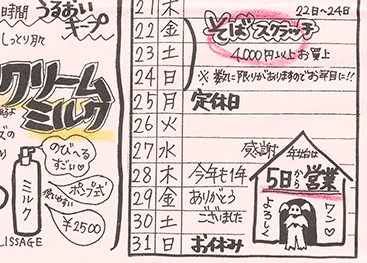 時間 うるおい
キープ
しっとり
クリーム
ミルク
のび〜る
すごい♡
ミルク
ポンプ式
使いやすい
¥2500
LISSAGE
21 木
22 金
23 土
24 日
25 月 定休日
26 火
27 水
28 木 今年も1年
29 金 ありがとう
30 土 ございました
31 日 お休み
22日〜24日
そばスクラッチ
4,000円以上お買上
※数に限りがありますのでお早目に!!
感謝
年始は
5日から営業
ワン♡
よろしく